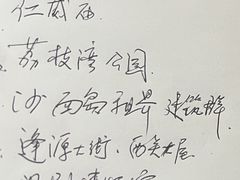 仁威庙
荔枝湾公园.
沙面岛租界 建筑群.
逢源大街. 西关大屋